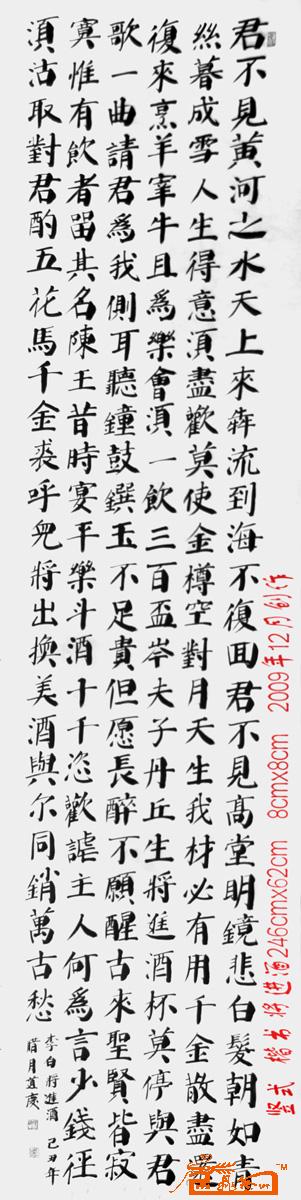 君不見黃河之水天上來犇流到海不復回君不見高堂明鏡悲白髮朝如青
絲暮成雪人生得意須盡歡莫使金樽空對月天生我材必有用千金散盡還
復來烹羊宰牛且爲樂會須一飲三百盃岑夫子丹丘生將進酒杯莫停與君
歌一曲請君爲我側耳聽鐘鼓饌玉不足貴但愿長醉不願醒古來聖賢皆寂
寞惟有飲者留其名陳王昔時宴平樂斗酒十千恣歡謔主人何爲言少錢徑
須沽取對君酌五花馬千金裘呼兒將出換美酒與尔同銷萬古愁
李白將進酒 己丑年
臘月
竖式 楷书将进酒246cmx62cm 8cmx8cm 2009年12月创作